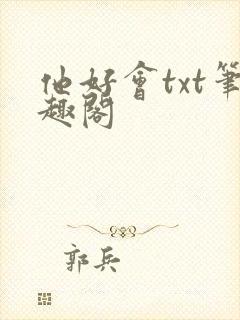 他好會txt筆
趣閣
郭兵